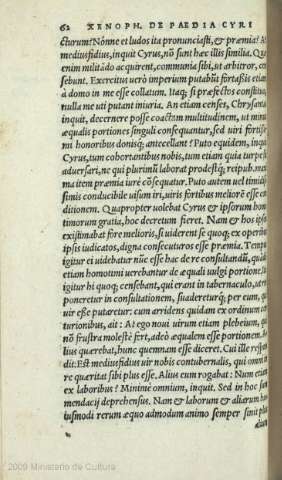 62 XENOPH. DE PAEDIA CYRI
cturum? Nónne et ludos ita pronunciasti, & præmia? At
mediusfidius, inquit Cyrus, nõ sunt hæc illis similia. Quæ
enim militãdo acquirent, communia sibi, ut arbitror, cen
sebunt. Exercitus uerò imperium putabũt fortaßis etiam
à domo in me esse collatum. Itaq; si præfectos constituo,
nulla me uti putant iniuria. An etiam censes, Chrysanta
inquit, decernere posse coactum multitudinem, ut minus
æqualis portiones singuli consequantur, sed uiri fortißi
mi honoribus donisq; antecellant? Puto equidem, inquit
Cyrus, tum cohortantibus nobis, tum etiam quia turpe sit
aduersari, ne qui plurimũ laborat prodestq; reipub. max
ma item præmia iure cõsequatur. Puto autem uel timidis
simis conducibile uisum iri, uiris fortibus meliorẽ esse con
ditionem. Quapropter uolebat Cyrus & ipsorum hono
timorum gratia, hoc decretum fieret. Nam & hos ipsos
existimabat fore meliores, si uiderent se quoq; ex operibus
ipsis iudicatos, digna consecuturos esse præmia. Tempus
igitur ei uidebatur nũc esse hac de re consultandũ, quando
etiam homotimi uerebantur de æquali uulgi portione. Ita
igitur hi quoq; censebant, qui erant in tabernaculo, ut re
poneretur in consultationem, suadereturq; per eum, qui
uir eße putaretur: cum arridens quidam ex ordinum cen
turionibus, ait: At ego noui uirum etiam plebeium, qui
nõ frustra molestè fert, adeò æqualem esse portionem. A
lius quærebat, hunc quemnam esse diceret. Cui ille respon
dit: Est mediusfidius uir nobis contubernalis, qui omni in
re quæritat sibi plus esse. Alius eum rogabat: Num etiam
ex laboribus? Minimè omnium, inquit. Sed in hoc sum
mendacij deprehensus. Nam & laborum & aliarum huius
iusmodi rerum æquo admodum animo semper sinit plus
2009 Ministerio de Cultura